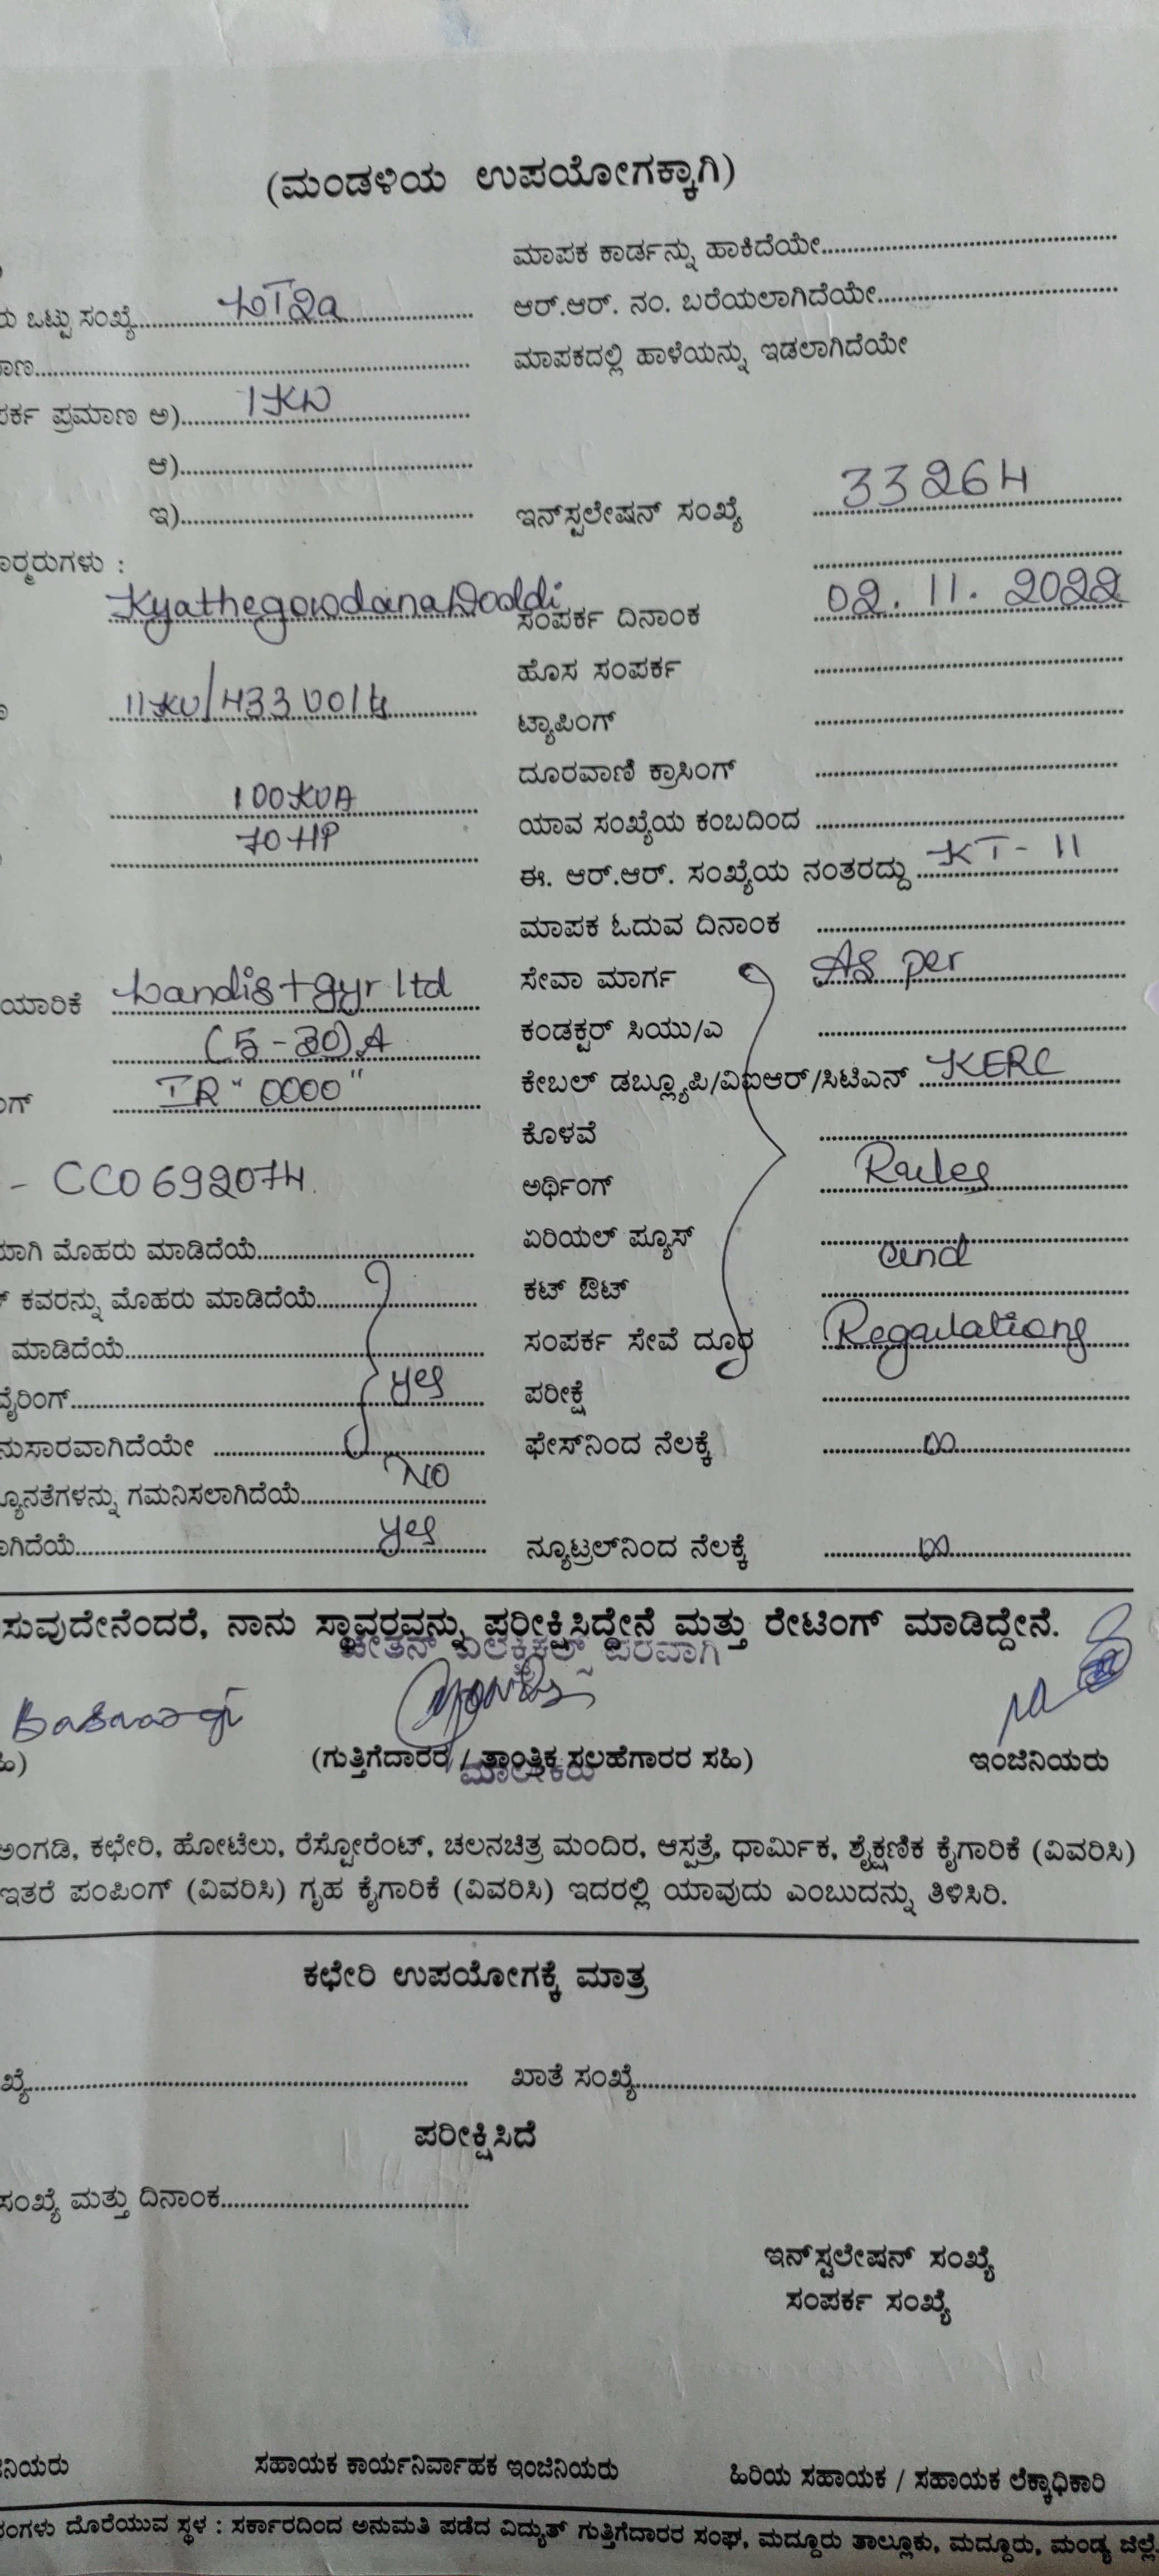 (ಮಂಡಳಿಯ ಉಪಯೋಗಕ್ಕಾಗಿ)
ಮಾಪಕ ಕಾರ್ಡನ್ನು ಹಾಕಿದೆಯೇ
ಒಟ್ಟು ಸಂಖ್ಯೆ LT2a ಆರ್.ಆರ್. ನಂ. ಬರೆಯಲಾಗಿದೆಯೇ
ಮಾಪಕದಲ್ಲಿ ಹಾಳೆಯನ್ನು ಇಡಲಾಗಿದೆಯೇ
ಪ್ರಮಾಣ ಅ) 1KW
ಆ)
ಇ) ಇನ್‌ಸ್ಟಲೇಷನ್ ಸಂಖ್ಯೆ 33264
KyathegowdanaDoddi ಸಂಪರ್ಕ ದಿನಾಂಕ 02.11.2022
ಹೊಸ ಸಂಪರ್ಕ
11KV/433 Volts ಟ್ಯಾಪಿಂಗ್
ದೂರವಾಣಿ ಕ್ರಾಸಿಂಗ್
100KVA ಯಾವ ಸಂಖ್ಯೆಯ ಕಂಬದಿಂದ
70HP ಈ. ಆರ್.ಆರ್. ಸಂಖ್ಯೆಯ ನಂತರದ್ದು KT-11
ಮಾಪಕ ಓದುವ ದಿನಾಂಕ
Landis+gyr ltd ಸೇವಾ ಮಾರ್ಗ As per
(5-30)A ಕಂಡಕ್ಟರ್ ಸಿಯು/ಎ
IR "0000" ಕೇಬಲ್ ಡಬ್ಲ್ಯೂಪಿ/ವಿಐಆರ್/ಸಿಟಿಎನ್ KERC
ಕೊಳವೆ
- CC0692074. ಅರ್ಥಿಂಗ್ Rules
ಮೊಹರು ಮಾಡಿದೆಯೆ ಏರಿಯಲ್ ಪ್ಯೂಸ್ and
ಕವರನ್ನು ಮೊಹರು ಮಾಡಿದೆಯೆ ಕಟ್ ಔಟ್
ಮಾಡಿದೆಯೆ ಸಂಪರ್ಕ ಸೇವೆ ದೂರ Regulations
ವೈರಿಂಗ್ yes ಪರೀಕ್ಷೆ
ಫೇಸ್‌ನಿಂದ ನೆಲಕ್ಕೆ ∞
ಗಮನಿಸಲಾಗಿದೆಯೆ NO
yes ನ್ಯೂಟ್ರಲ್‌ನಿಂದ ನೆಲಕ್ಕೆ ∞
ಸುವುದೇನೆಂದರೆ, ನಾನು ಸ್ಥಾವರವನ್ನು ಪರೀಕ್ಷಿಸಿದ್ದೇನೆ ಮತ್ತು ರೇಟಿಂಗ್ ಮಾಡಿದ್ದೇನೆ.
ಪರವಾಗಿ
(ಗುತ್ತಿಗೆದಾರರ / ತಾಂತ್ರಿಕ ಸಲಹೆಗಾರರ ಸಹಿ) ಇಂಜಿನಿಯರು
ಮಾಲೀಕರು
ಅಂಗಡಿ, ಕಛೇರಿ, ಹೋಟೆಲು, ರೆಸ್ಟೋರೆಂಟ್, ಚಲನಚಿತ್ರ ಮಂದಿರ, ಆಸ್ಪತ್ರೆ, ಧಾರ್ಮಿಕ, ಶೈಕ್ಷಣಿಕ ಕೈಗಾರಿಕೆ (ವಿವರಿಸಿ)
ಇತರೆ ಪಂಪಿಂಗ್ (ವಿವರಿಸಿ) ಗೃಹ ಕೈಗಾರಿಕೆ (ವಿವರಿಸಿ) ಇದರಲ್ಲಿ ಯಾವುದು ಎಂಬುದನ್ನು ತಿಳಿಸಿರಿ.
ಕಛೇರಿ ಉಪಯೋಗಕ್ಕೆ ಮಾತ್ರ
ಖಾತೆ ಸಂಖ್ಯೆ
ಪರೀಕ್ಷಿಸಿದೆ
ಸಂಖ್ಯೆ ಮತ್ತು ದಿನಾಂಕ
ಇನ್‌ಸ್ಟಲೇಷನ್ ಸಂಖ್ಯೆ
ಸಂಪರ್ಕ ಸಂಖ್ಯೆ
ಸಹಾಯಕ ಕಾರ್ಯನಿರ್ವಾಹಕ ಇಂಜಿನಿಯರು ಹಿರಿಯ ಸಹಾಯಕ / ಸಹಾಯಕ ಲೆಕ್ಕಾಧಿಕಾರಿ
ದೊರೆಯುವ ಸ್ಥಳ : ಸರ್ಕಾರದಿಂದ ಅನುಮತಿ ಪಡೆದ ವಿದ್ಯುತ್ ಗುತ್ತಿಗೆದಾರರ ಸಂಘ, ಮದ್ದೂರು ತಾಲ್ಲೂಕು, ಮದ್ದೂರು, ಮಂಡ್ಯ ಜಿಲ್ಲೆ.